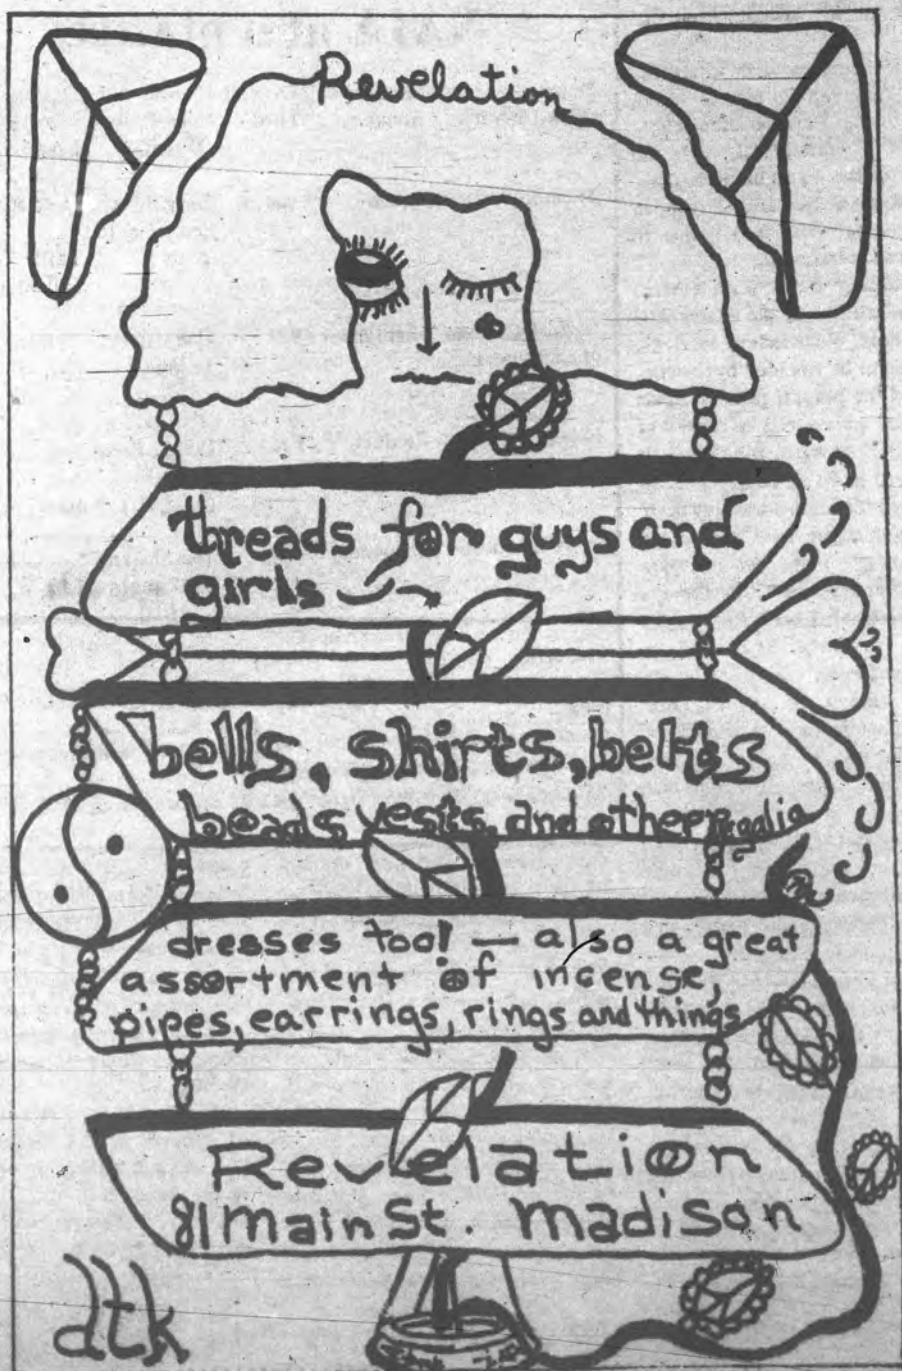 Revelation
threads for guys and
girls
bells, shirts, belts
beads, vests, and other regalia
dresses too! — also a great
assortment of incense,
pipes, earrings, rings and things
Revelation
81 Main St. Madison
dtk